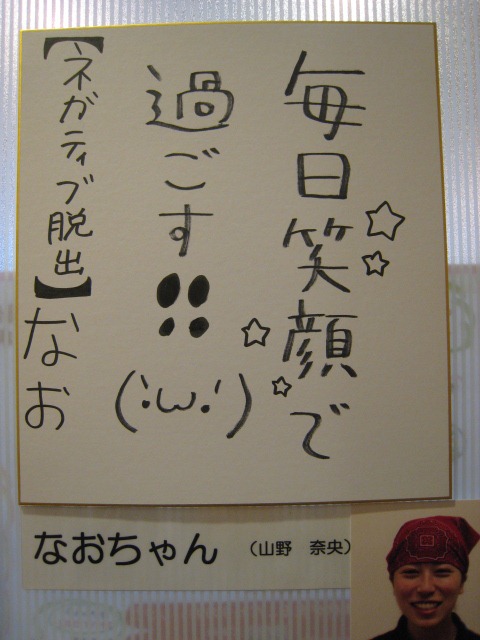 毎日笑顔で
過ごす!!(´・ω・｀)
【ネガティブ脱出】なお
なおちゃん (山野 奈央)